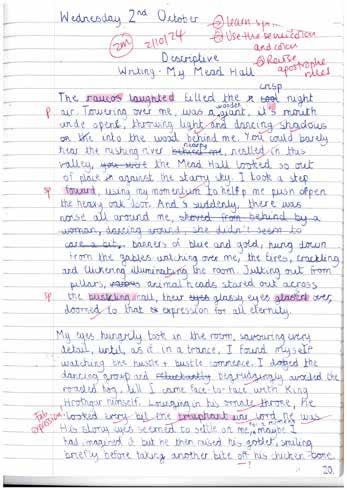 Wednesday 2nd October
① Learn sp...
② Use the semicolon
and colon
③ Revise
apostrophe
rules
2m
2/10/24
Descriptive
Writing - My Mead Hall
crisp
The raucos laughted filled the cool night
wonder
P air. Towering over me, was a giant, it's mouth
wide opent, throwing light and dancing shadows
on the into the wood behind me. You could barely
nearby
hear the rushing river behind me, nestled in this
valley, you were the Mead Hall looked so out
of place in against the starry sky. I took a step
sp foward, using my momentum to help me push open
the heavy oak door. And s suddenly, there was
noise all around me, shoved from behind by a
woman, dancing around, she didn't seem to
care a bit, banners of blue and gold, hung down
from the gables watching over me, the fires, crackling
and flickering illuminating the room. Jutting out from
pillars, various animal heads stared out across
sp the bustling hall, their eyes glassy eyes glased over,
doomed to that expression for all eternity.
My eyes hungrily took in the room, savouring every
detail, until, as if in a trance, I found myself
watching the hustle + bustle commence. I doged the
dancing group and reluctantly begrudgingly avoided the
roasted hog, till I came face-to-face with King
Hrothgar himself. Lounging in his ornate throne, he
Fab
expression!
looked every bit the triumphant war lord he was
for a moment
His stony eyes seemed to settle on me, maybe I
had imagined it but he then raised his goblet, smiling
briefly before taking another bite off his chicken bone.
20.